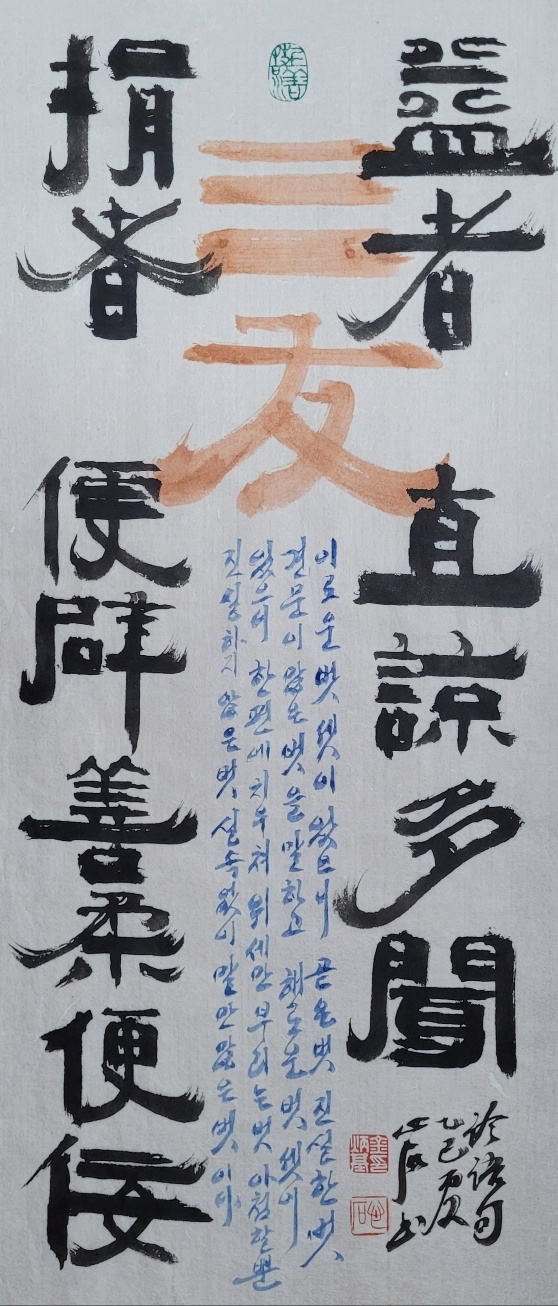 益者
三友
直諒多聞
論語句
乙巳夏
心石 書
이로운 벗 셋이 있으니 곧은 벗 진실한 벗
견문이 많은 벗을 말하고 해로운 벗 셋이
있으니 한편에 치우쳐 위세만 부리는 벗 아첨할 뿐
진실하지 않은 벗 실속없이 말만 많은 벗이다
損者
便辟善柔便佞